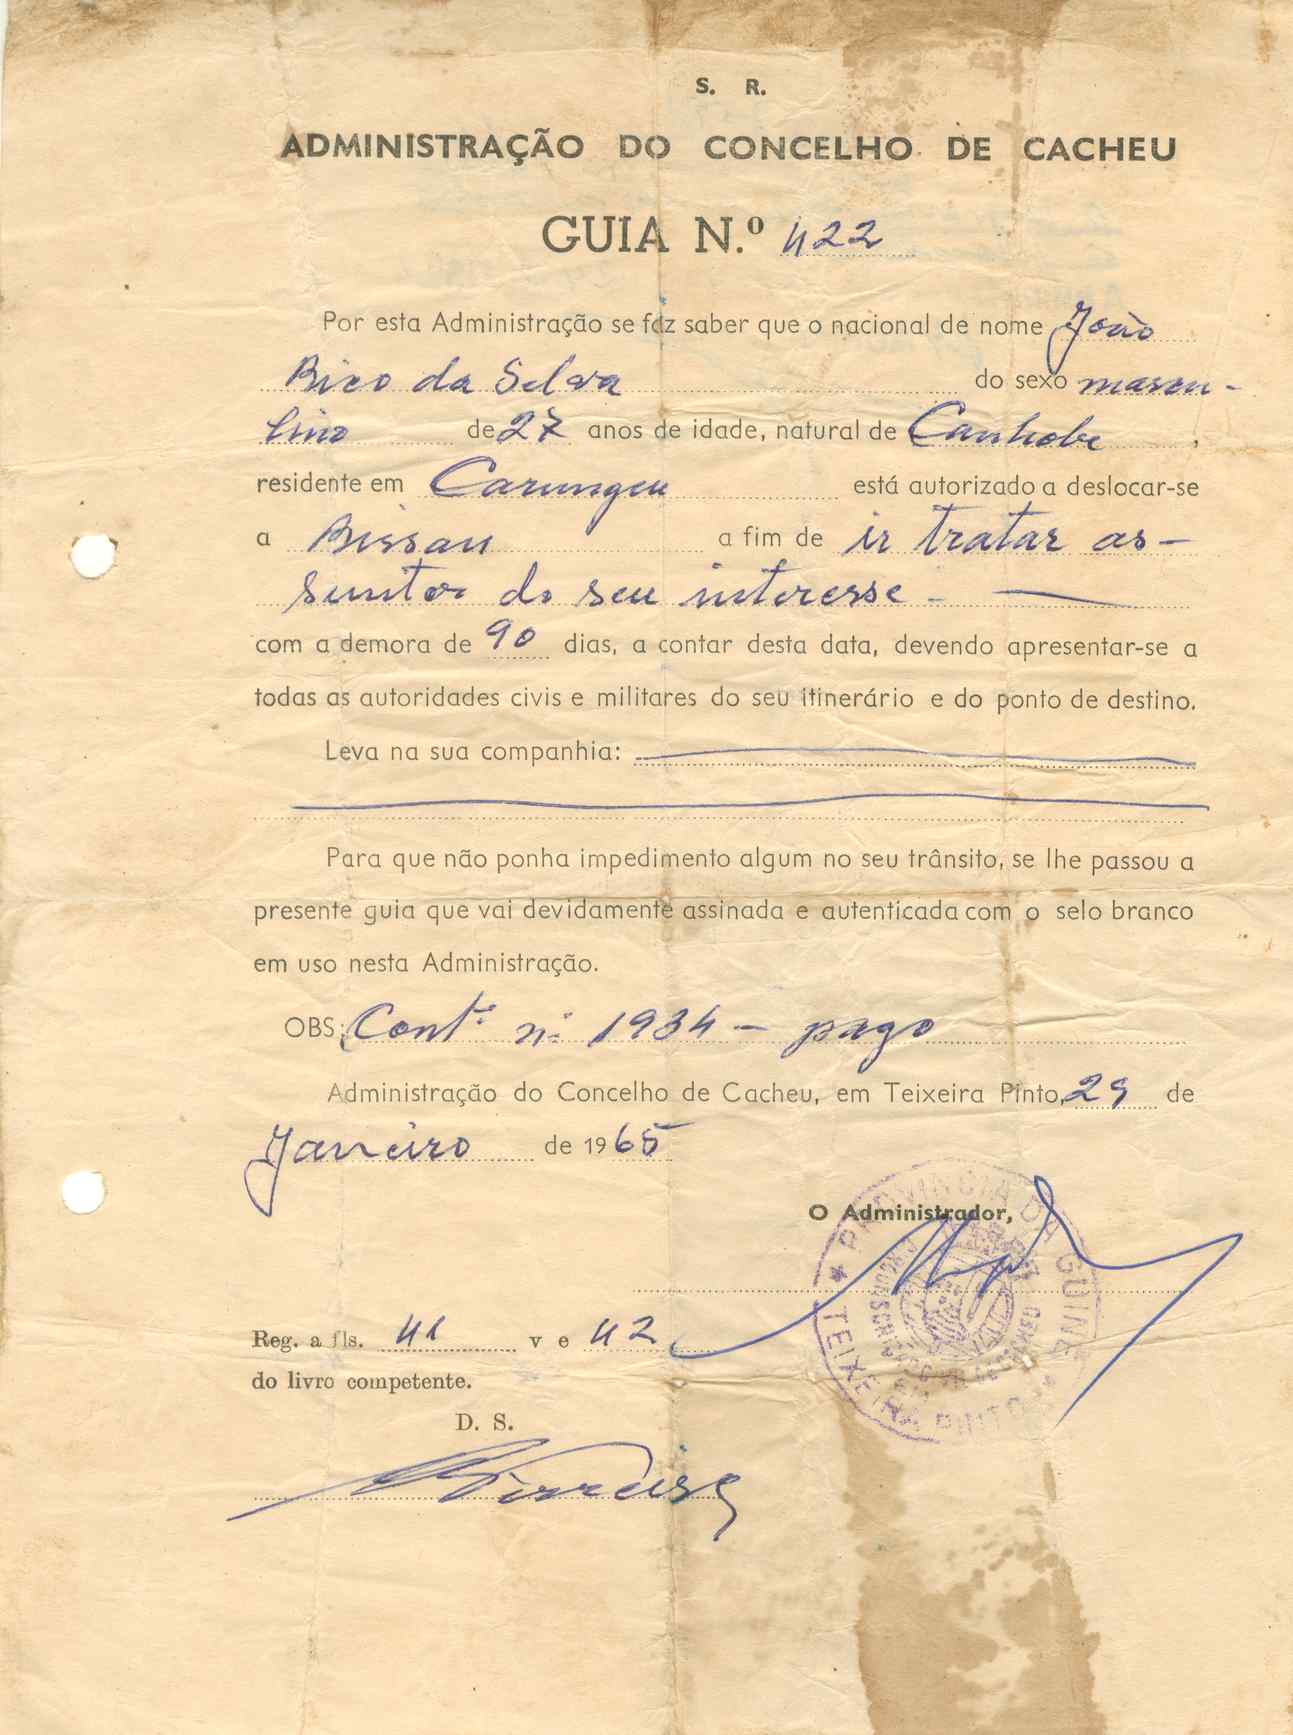 S. R.
ADMINISTRAÇÃO DO CONCELHO DE CACHEU
GUIA N.º 422
Por esta Administração se faz saber que o nacional de nome João
Bico da Selva do sexo mascu-
lino de 27 anos de idade, natural de Canhobe,
residente em Carungeu está autorizado a deslocar-se
a Bissau a fim de ir tratar as-
suntos do seu interesse -
com a demora de 90 dias, a contar desta data, devendo apresentar-se a
todas as autoridades civis e militares do seu itinerário e do ponto de destino.
Leva na sua companhia:
Para que não ponha impedimento algum no seu trânsito, se lhe passou a
presente guia que vai devidamente assinada e autenticada com o selo branco
em uso nesta Administração.
OBS: Cont.º nº 1934 - pago
Administração do Concelho de Cacheu, em Teixeira Pinto, 29 de
Janeiro de 1965
O Administrador,
PROVINCIA DA GUINÉ
TEIXEIRA PINTO
Reg. a fls. 41 v e 42
do livro competente.
D. S.